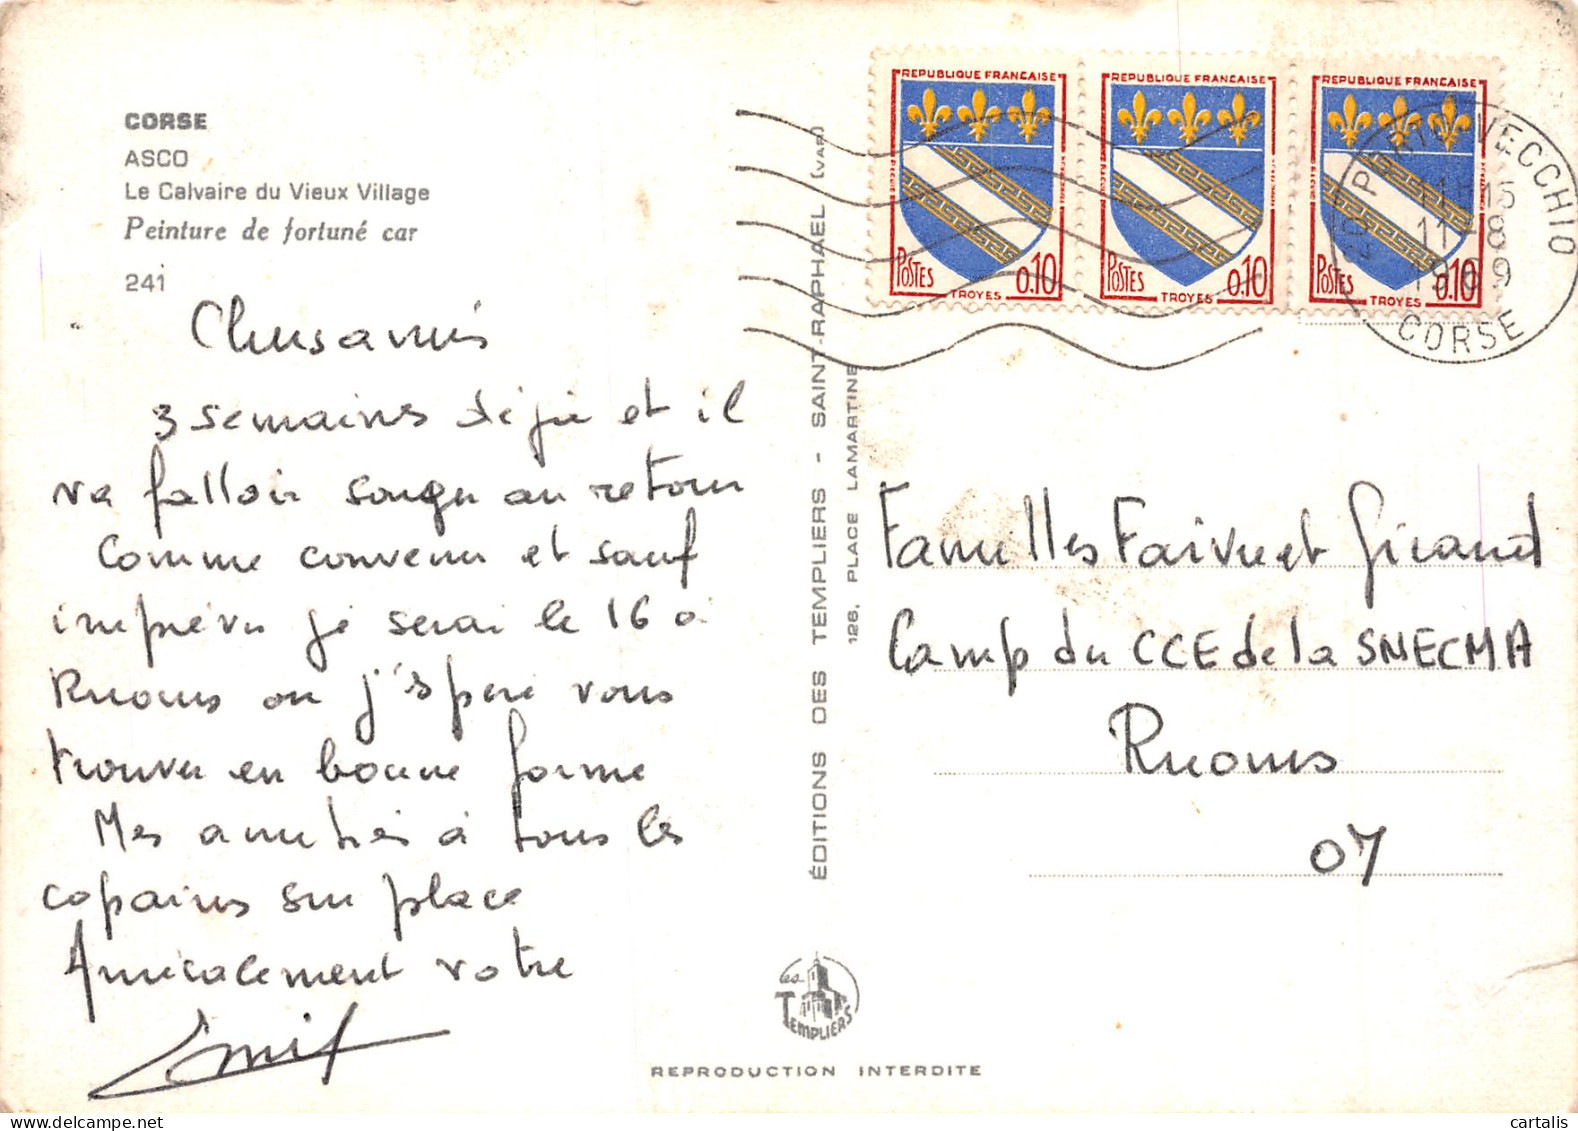 CORSE
ASCO
Le Calvaire du Vieux Village
Peinture de fortuné car
241
Chers amis
3 semaines déjà et il
va falloir songer au retour
Comme convenu et sauf
imprévu je serai le 16 à
Ruoms où j'espère vous
trouver en bonne forme
Mes amitiés à tous les
copains sur place
Amicalement votre
Emile
ÉDITIONS DES TEMPLIERS - SAINT-RAPHAEL (VAR)
126, PLACE LAMARTINE
Les
TEMPLIERS
REPRODUCTION INTERDITE
REPUBLIQUE FRANCAISE
POSTES 0.10
TROYES
REPUBLIQUE FRANCAISE
POSTES 0.10
TROYES
REPUBLIQUE FRANCAISE
POSTES 0.10
TROYES
PORTO VECCHIO
11H15
11-8
1969
CORSE
Familles Faivre et Girand
Camp du CCE de la SNECMA
Ruoms
07
cartalis